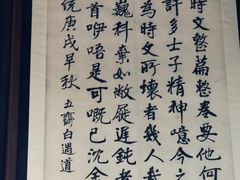 時文整篇整卷要他何
許多士子精神噫今之
為時文所壞者幾人矣
巍科棄如敝屣遲鈍者
首咿唔是可慨已沈金
統庚戌早秋
五齋白遇道